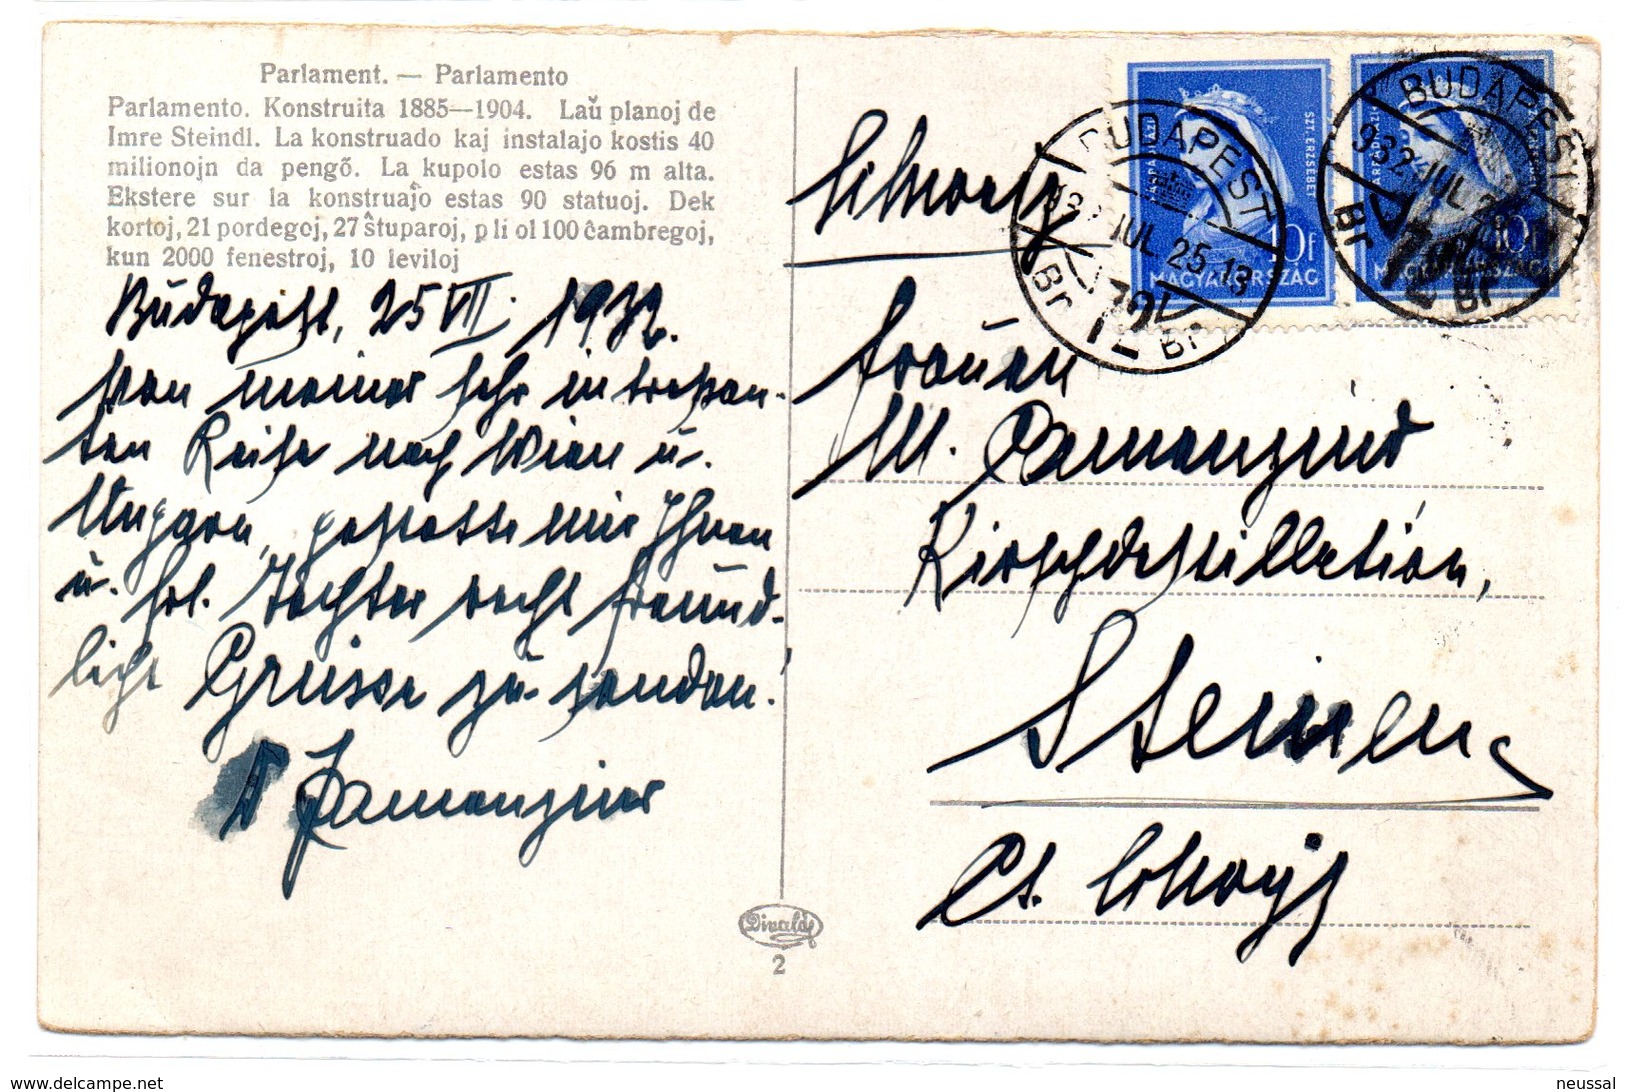 Parlament. — Parlamento
Parlamento. Konstruita 1885—1904. Laŭ planoj de
Imre Steindl. La konstruado kaj instalajo kostis 40
milionojn da pengő. La kupolo estas 96 m alta.
Ekstere sur la konstruaĵo estas 90 statuoj. Dek
kortoj, 21 pordegoj, 27 ŝtuparoj, pli ol 100 ĉambregoj,
kun 2000 fenestroj, 10 leviloj
Budapest, 25 VII. 1932.
Von meiner sehr intressan-
ten Reise nach Wien u.
Ungarn, gestatte mir Ihnen
u. Frl. Tochter recht freund-
lichst Grüsse zu senden.
Camenzind
Divald
2
Schweiz
Frauen
M. Camenzind
Kirschdestillation,
Steinen
Ct. Schwyz
ÁRPÁDHÁZI SZT. ERZSÉBET
10f
MAGYARORSZÁG
ÁRPÁDHÁZI
10f
MAGYARORSZÁG
BUDAPEST
932 JUL 25 13
Br 72 Br
BUDAPEST
932 JUL
Br 72 Br
delcampe.net
neussal